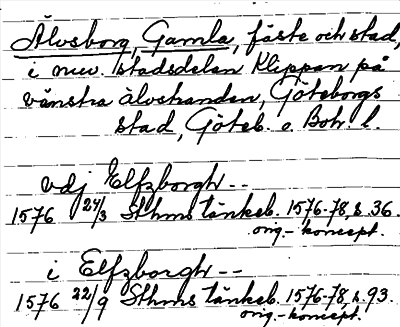 Älvsborg, Gamla, fäste och stad,
i nuv. stadsdelen Klippan på
vänstra älvstranden, Göteborgs
stad, Göteb. o. Boh. l.
vdj Elfzborgh --
1576 24/3 Sthms tänkeb. 1576-78, s. 36.
orig.- koncept.
i Elfzborgh --
1576 22/9 Sthms tänkeb. 1576-78, s. 93.
orig.- koncept.